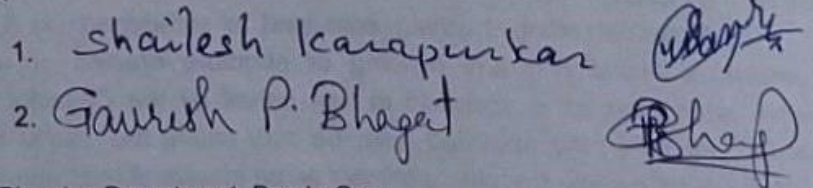 1. Shailesh Karapurkar
2. Gauresh P. Bhagat